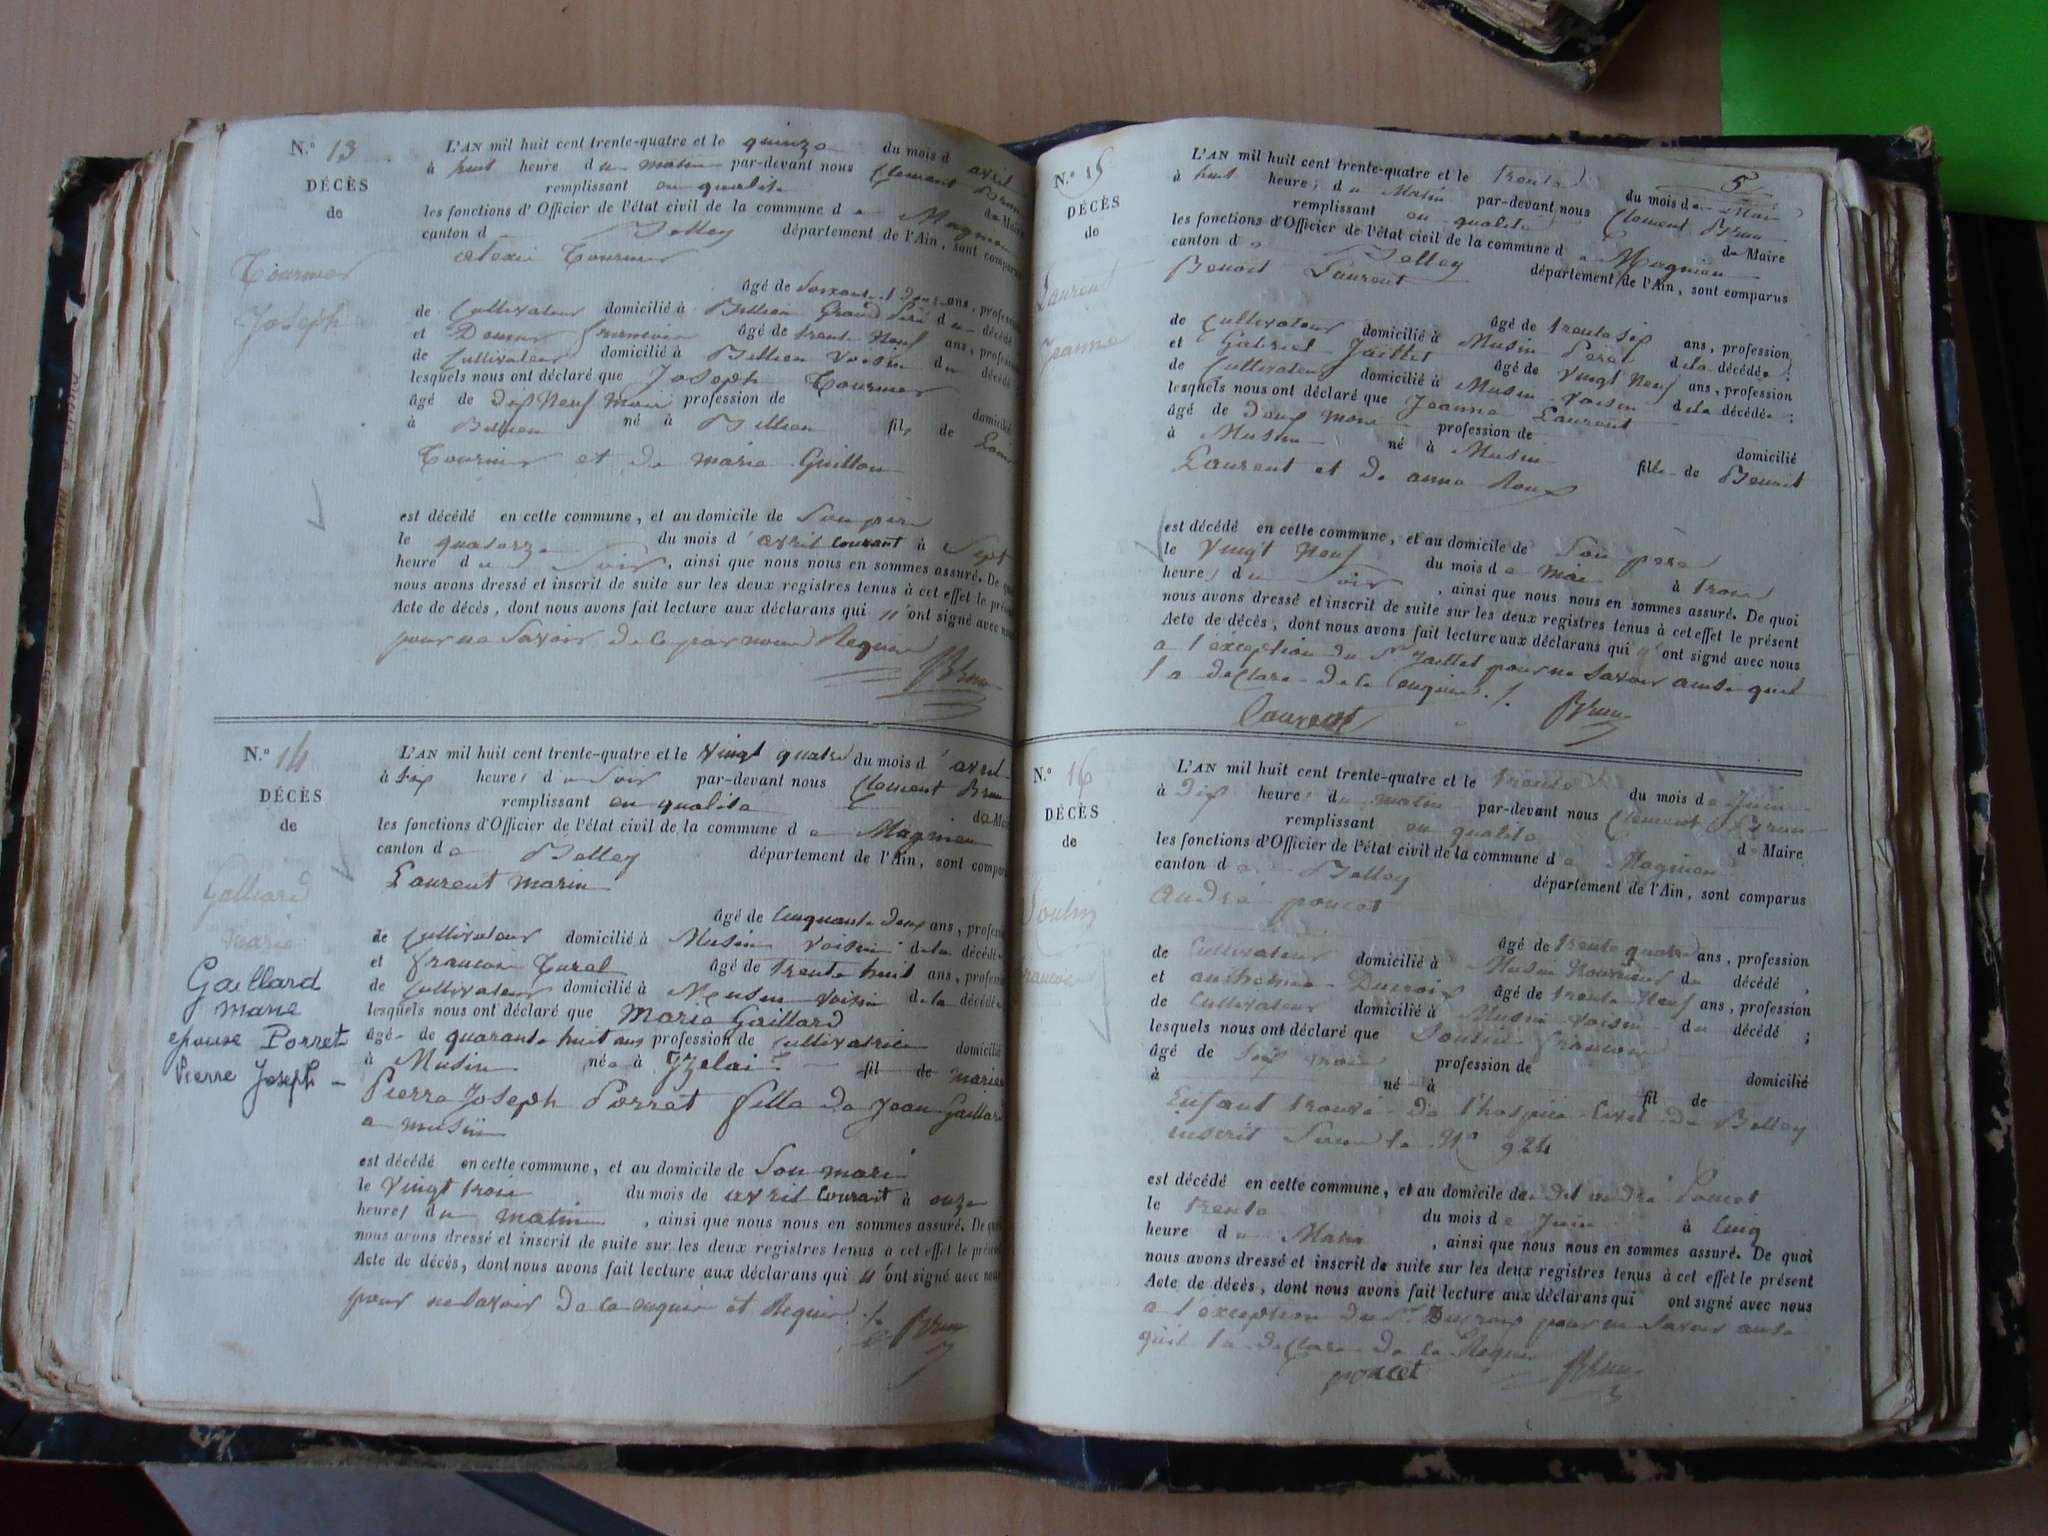 N.° 13
DÉCÈS
de
Tournier
Joseph
L'AN mil huit cent trente-quatre et le quinze du mois d avril
à huit heure du matin par-devant nous Clement Brun
remplissant en qualité de Maire
les fonctions d'Officier de l'état civil de la commune d e Magnieu
canton d e Belley département de l'Ain, sont comparus
Tournier
âgé de Soixante ans, profession
de Cultivateur domicilié à Billieu Grand Père du décédé
et âgé de trente Neuf ans, profession
de Cultivateur domicilié à Billieu voisin du décédé
lesquels nous ont déclaré que Joseph Tournier
âgé de dix Neuf mois profession de domicilié
à Billieu né à Billieu fils de
Tournier et de marie Guillon
est décédé en cette commune, et au domicile de Son père
le quatorze du mois d'avril Courant à Sept
heure du Soir, ainsi que nous nous en sommes assuré. De quoi
nous avons dressé et inscrit de suite sur les deux registres tenus à cet effet le présent
Acte de décès, dont nous avons fait lecture aux déclarans qui n'ont signé avec nous
pour ne Savoir de ce par nous Requis
Brun
N.° 14
DÉCÈS
de
Galliard
marie
Gaillard
marie
epouse Porret
Pierre Joseph
L'AN mil huit cent trente-quatre et le vingt quatre du mois d'avril
à six heures du Soir par-devant nous Clement Brun
remplissant en qualité de Maire
les fonctions d'Officier de l'état civil de la commune d e Magnieu
canton d e Belley département de l'Ain, sont comparus
Laurent Marin
âgé de Cinquante deux ans, profession
de Cultivateur domicilié à Musin voisin de la décédée
et francois Curel âgé de trente huit ans, profession
de Cultivateur domicilié à Musin voisin de la décédée
lesquels nous ont déclaré que Marie Gaillard
âgée de quarante huit ans profession de Cultivatrice domicilié
à Musin née à Izelai fil de mariée
Pierre Joseph Porret fille de Jean Gaillard
a musin
est décédé en cette commune, et au domicile de Son mari
le vingt trois du mois de avril Courant à onze
heures du matin, ainsi que nous nous en sommes assuré. De quoi
nous avons dressé et inscrit de suite sur les deux registres tenus à cet effet le présent
Acte de décès, dont nous avons fait lecture aux déclarans qui n'ont signé avec nous
pour ne Savoir de ce enquis et Requis ./.
Brun
5
N.° 15
DÉCÈS
de
Laurent
Jeanne
L'AN mil huit cent trente-quatre et le trente du mois de Mai
à huit heures du Matin par-devant nous Clement Brun
remplissant en qualité de Maire
les fonctions d'Officier de l'état civil de la commune d e Magnieu
canton d e Belley département de l'Ain, sont comparus
Benoit Laurent
âgé de trente six ans, profession
de Cultivateur domicilié à Musin Père de la décédée
et Gabriel Jaillet âgé de vingt Neuf ans, profession
de Cultivateur domicilié à Musin voisin de la décédée ;
lesquels nous ont déclaré que Jeanne Laurent
âgé de deux mois profession de domicilié
à Musin né à Musin fille de Benoit
Laurent et de anne Roux
est décédé en cette commune, et au domicile de Son père
le vingt Neuf du mois de Mai à trois
heures du Soir, ainsi que nous nous en sommes assuré. De quoi
nous avons dressé et inscrit de suite sur les deux registres tenus à cet effet le présent
Acte de décès, dont nous avons fait lecture aux déclarans qui n'ont signé avec nous
a l'éxception du Sr Jaillet pour ne Savoir ainsi quil
l a déclaré de ce enquis ./.
Laurent Brun
N.° 16
DÉCÈS
de
francois
L'AN mil huit cent trente-quatre et le trente du mois de Juin
à Dix heures du matin par-devant nous Clement Brun
remplissant en qualité de Maire
les fonctions d'Officier de l'état civil de la commune d e Magnieu
canton d e Belley département de l'Ain, sont comparus
andré poncet
âgé de trente quatre ans, profession
de Cultivateur domicilié à Musin Nourricier du décédé,
et anthelme Ducroix âgé de trente Neuf ans, profession
de Cultivateur domicilié à Musin voisin du décédé ;
lesquels nous ont déclaré que francois
âgé de Six mois profession de domicilié
à né à fil de
Enfant trouvé de l'hospice Civil de Belley
inscrit Sous le N° 924
est décédé en cette commune, et au domicile de dit andré Poncet
le trente du mois de Juin à Cinq
heure du Matin, ainsi que nous nous en sommes assuré. De quoi
nous avons dressé et inscrit de suite sur les deux registres tenus à cet effet le présent
Acte de décès, dont nous avons fait lecture aux déclarans qui ont signé avec nous
a l'éxception du Sr Ducroix pour ne Savoir ainsi
qu'il l a déclaré de ce Requis
poncet Brun